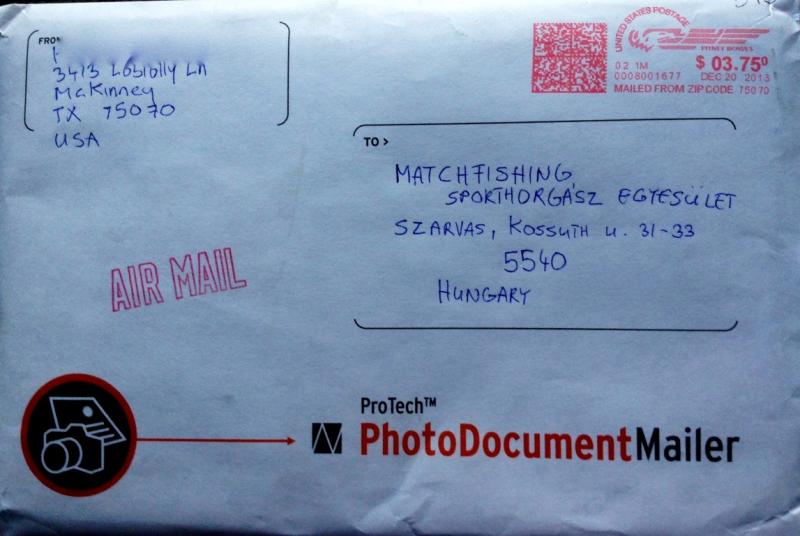 FROM
3413 Loblolly Ln
McKinney
TX 75070
USA
UNITED STATES POSTAGE
PITNEY BOWES
02 1M
$ 03.75⁰
0008001677 DEC 20 2013
MAILED FROM ZIP CODE 75070
TO >
MATCHFISHING
SPORTHORGÁSZ EGYESÜLET
SZARVAS, KOSSUTH u. 31-33
5540
HUNGARY
AIR MAIL
ProTech™
PhotoDocumentMailer